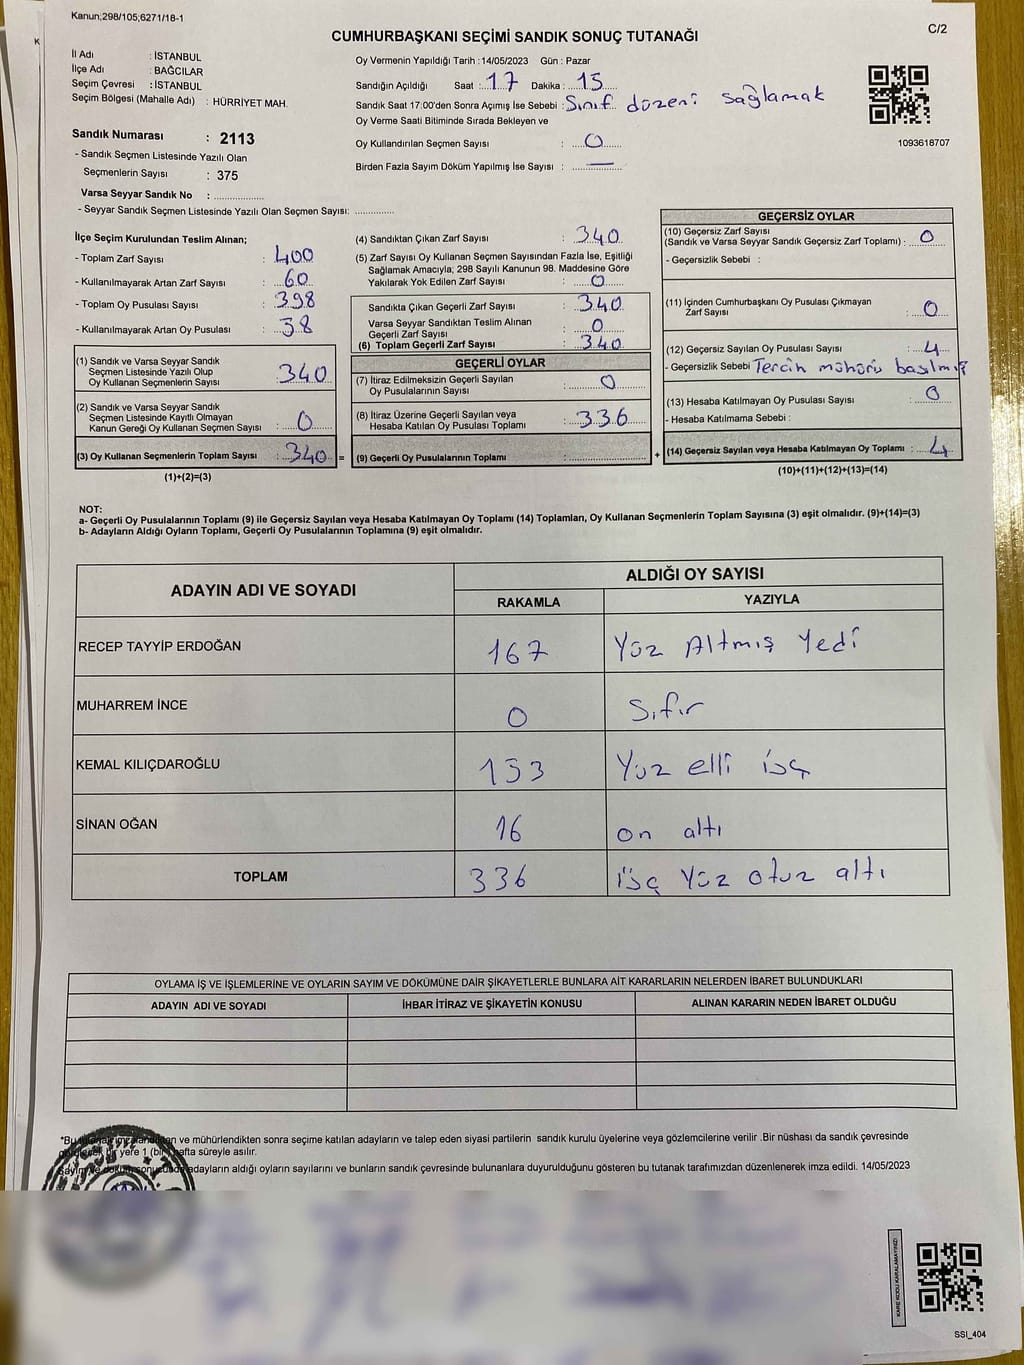 Kanun;298/105;6271/18-1
C/2
CUMHURBAŞKANI SEÇİMİ SANDIK SONUÇ TUTANAĞI
İl Adı : İSTANBUL
İlçe Adı : BAĞCILAR
Seçim Çevresi : İSTANBUL
Seçim Bölgesi (Mahalle Adı) : HÜRRİYET MAH.
Sandık Numarası : 2113
- Sandık Seçmen Listesinde Yazılı Olan
Seçmenlerin Sayısı : 375
Varsa Seyyar Sandık No : ................
- Seyyar Sandık Seçmen Listesinde Yazılı Olan Seçmen Sayısı: .............
Oy Vermenin Yapıldığı Tarih : 14/05/2023 Gün : Pazar
Sandığın Açıldığı Saat : 17 Dakika : 15
Sandık Saat 17:00'den Sonra Açımış İse Sebebi : Sınıf düzeni sağlamak
Oy Verme Saati Bitiminde Sırada Bekleyen ve
Oy Kullandırılan Seçmen Sayısı : 0
Birden Fazla Sayım Döküm Yapılmış İse Sayısı : —
1093618707
İlçe Seçim Kurulundan Teslim Alınan;
- Toplam Zarf Sayısı : 400
- Kullanılmayarak Artan Zarf Sayısı : 60
- Toplam Oy Pusulası Sayısı : 398
- Kullanılmayarak Artan Oy Pusulası : 38
(1) Sandık ve Varsa Seyyar Sandık
Seçmen Listesinde Yazılı Olup
Oy Kullanan Seçmenlerin Sayısı : 340
(2) Sandık ve Varsa Seyyar Sandık
Seçmen Listesinde Kayıtlı Olmayan
Kanun Gereği Oy Kullanan Seçmen Sayısı : 0
(3) Oy Kullanan Seçmenlerin Toplam Sayısı : 340 =
(1)+(2)=(3)
(4) Sandıktan Çıkan Zarf Sayısı : 340
(5) Zarf Sayısı Oy Kullanan Seçmen Sayısından Fazla İse, Eşitliği
Sağlamak Amacıyla; 298 Sayılı Kanunun 98. Maddesine Göre
Yakılarak Yok Edilen Zarf Sayısı : 0
Sandıkta Çıkan Geçerli Zarf Sayısı : 340
Varsa Seyyar Sandıktan Teslim Alınan
Geçerli Zarf Sayısı : 0
(6) Toplam Geçerli Zarf Sayısı : 340
GEÇERLİ OYLAR
(7) İtiraz Edilmeksizin Geçerli Sayılan
Oy Pusulasının Sayısı : 0
(8) İtiraz Üzerine Geçerli Sayılan veya
Hesaba Katılan Oy Pusulası Toplamı : 336
(9) Geçerli Oy Pusulalarının Toplamı : ................ +
GEÇERSİZ OYLAR
(10) Geçersiz Zarf Sayısı
(Sandık ve Varsa Seyyar Sandık Geçersiz Zarf Toplamı) : 0
- Geçersizlik Sebebi :
(11) İçinden Cumhurbaşkanı Oy Pusulası Çıkmayan
Zarf Sayısı : 0
(12) Geçersiz Sayılan Oy Pusulası Sayısı : 4
- Geçersizlik Sebebi Tercih mühürü basılmış
(13) Hesaba Katılmayan Oy Pusulası Sayısı : 0
- Hesaba Katılmama Sebebi :
(14) Geçersiz Sayılan veya Hesaba Katılmayan Oy Toplamı : 4
(10)+(11)+(12)+(13)=(14)
NOT:
a- Geçerli Oy Pusulalarının Toplamı (9) ile Geçersiz Sayılan veya Hesaba Katılmayan Oy Toplamı (14) Toplamları, Oy Kullanan Seçmenlerin Toplam Sayısına (3) eşit olmalıdır. (9)+(14)=(3)
b- Adayların Aldığı Oyların Toplamı, Geçerli Oy Pusulalarının Toplamına (9) eşit olmalıdır.
ADAYIN ADI VE SOYADI
ALDIĞI OY SAYISI
RAKAMLA YAZIYLA
RECEP TAYYİP ERDOĞAN 167 Yüz Altmış Yedi
MUHARREM İNCE 0 Sıfır
KEMAL KILIÇDAROĞLU 153 Yüz elli üç
SİNAN OĞAN 16 on altı
TOPLAM 336 üç Yüz otuz altı
OYLAMA İŞ VE İŞLEMLERİNE VE OYLARIN SAYIM VE DÖKÜMÜNE DAİR ŞİKAYETLERLE BUNLARA AİT KARARLARIN NELERDEN İBARET BULUNDUKLARI
ADAYIN ADI VE SOYADI İHBAR İTİRAZ VE ŞİKAYETİN KONUSU ALINAN KARARIN NEDEN İBARET OLDUĞU
*Bu ve mühürlendikten sonra seçime katılan adayların ve talep eden siyasi partilerin sandık kurulu üyelerine veya gözlemcilerine verilir .Bir nüshası da sandık çevresinde
bir yere 1 (bir) hafta süreyle asılır.
Sayım ve adayların aldığı oyların sayılarını ve bunların sandık çevresinde bulunanlara duyurulduğunu gösteren bu tutanak tarafımızdan düzenlenerek imza edildi. 14/05/2023
KARE KODU KARALAMAYINIZ!
SSI_404